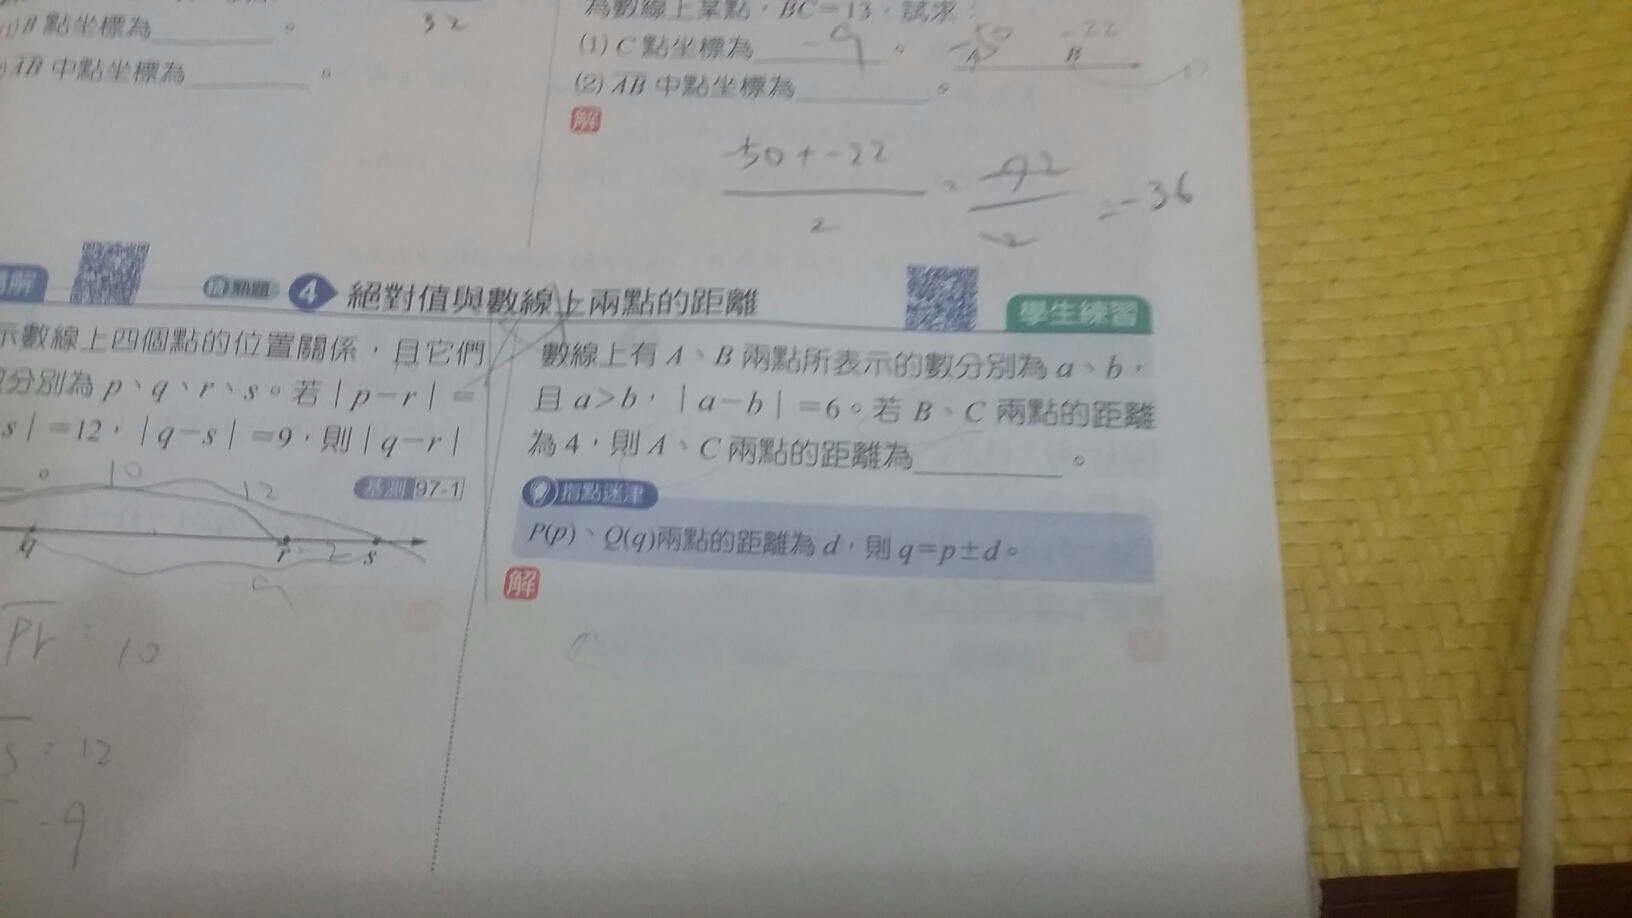 B 點坐標為 。
32
AB 中點坐標為 。
為數線上某點，BC=13，試求：
(1) C 點坐標為 -9 。
-50 -22
A B
(2) AB 中點坐標為 。
解
-22
2
= -36
4 絕對值與數線上兩點的距離
學生練習
示數線上四個點的位置關係，且它們
分別為 p、q、r、s。若|p-r|=
s|=12，|q-s|=9，則|q-r|
。
基測 97-1
10 12
q r 2 s
9
Pr = 10
s = 12
9
數線上有 A、B 兩點所表示的數分別為 a、b，
且 a>b，|a-b|=6。若 B、C 兩點的距離
為 4，則 A、C 兩點的距離為 。
指點迷津
P(p)、Q(q)兩點的距離為 d，則 q=p±d。
解